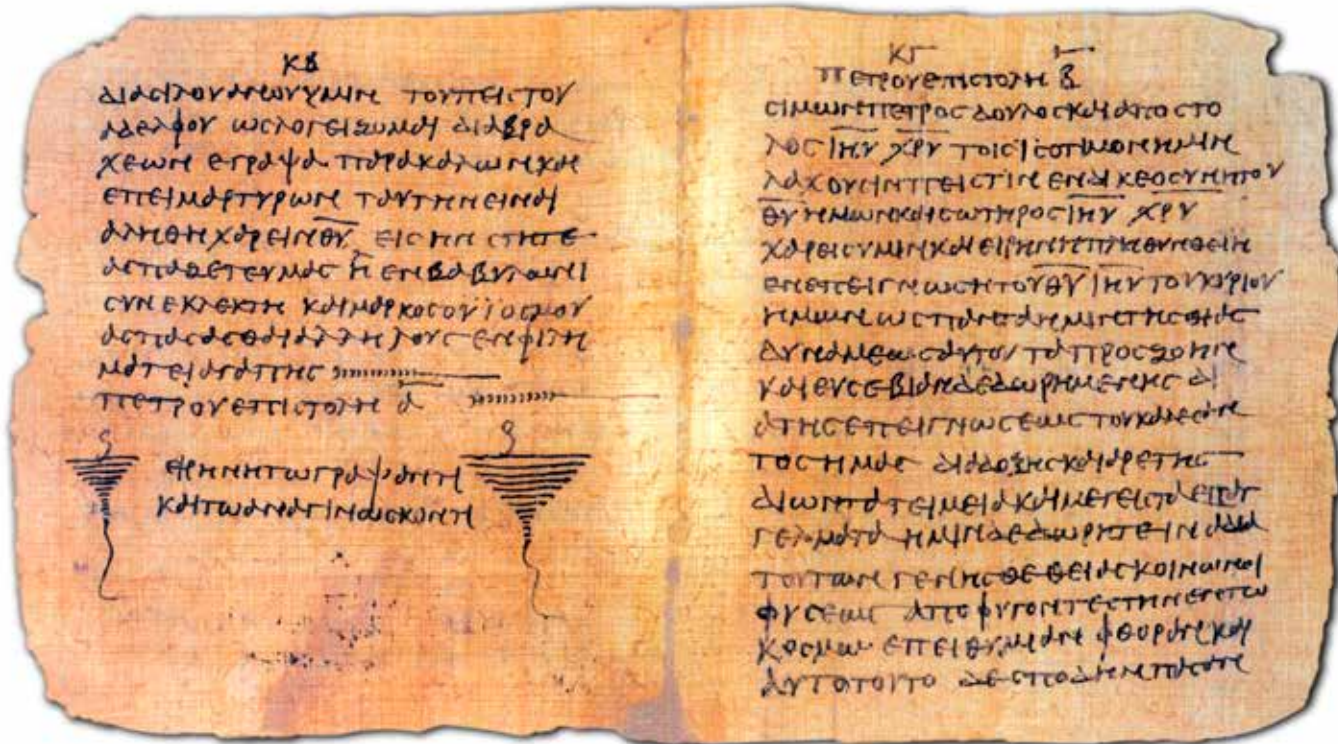 κβ
διασιλουανουυμιν τουπειστου
αδελφου ωςλογειζομαι διαβρα
χεων εγραψα παρακαλωνκαι
επειμαρτυρων ταυτηνειναι
αληθηχαρεινθυ̅ εισην στητε
ασπαζετευμας η ενβαβυλωνι
συνεκλεκτη καιμαρκοςουϊοςμου
ασπασασθαιαλληλουςενφιλη
ματειαγαπης
πετρουεπιστολη α̅
ειρηνητωγραψαντι
καιτωαναγινωσκοντι
κγ
πετρουεπιστολη β̅
σιμωνπετροςδουλοςκαιαποστο
λος ιηυ̅ χρυ̅ τοισισοτιμονημιν
λαχουσινπειστινενδικεοσυνητου
θυ̅ ημωνκαισωτηρος ιηυ̅ χρυ̅
χαρεισυμινκαιειρηνηπληθυνθειη
ενεπειγνωσητουθυ̅ ιηυ̅ τουκυριου
ημων ωςπανταημιντηςθιας
δυναμεωςαυτουταπροςζωην
καιευσεβιανδεδωρημενης δι
ατηςεπειγνωσεωςτουκαλεσαν
τοσημας διαδοξηςκαιαρετης
διωντατειμειακαιμεγεισταεπαγ
γελματα ημινδεδωρητεειναδια
τουτωνγενησθεθειαςκοινωνοι
φυσεως αποφυγοντεςτηνεντω
κοσμω επειθυμιανφθορανκαι
αυτοτουτο δεσποδηνπασαν